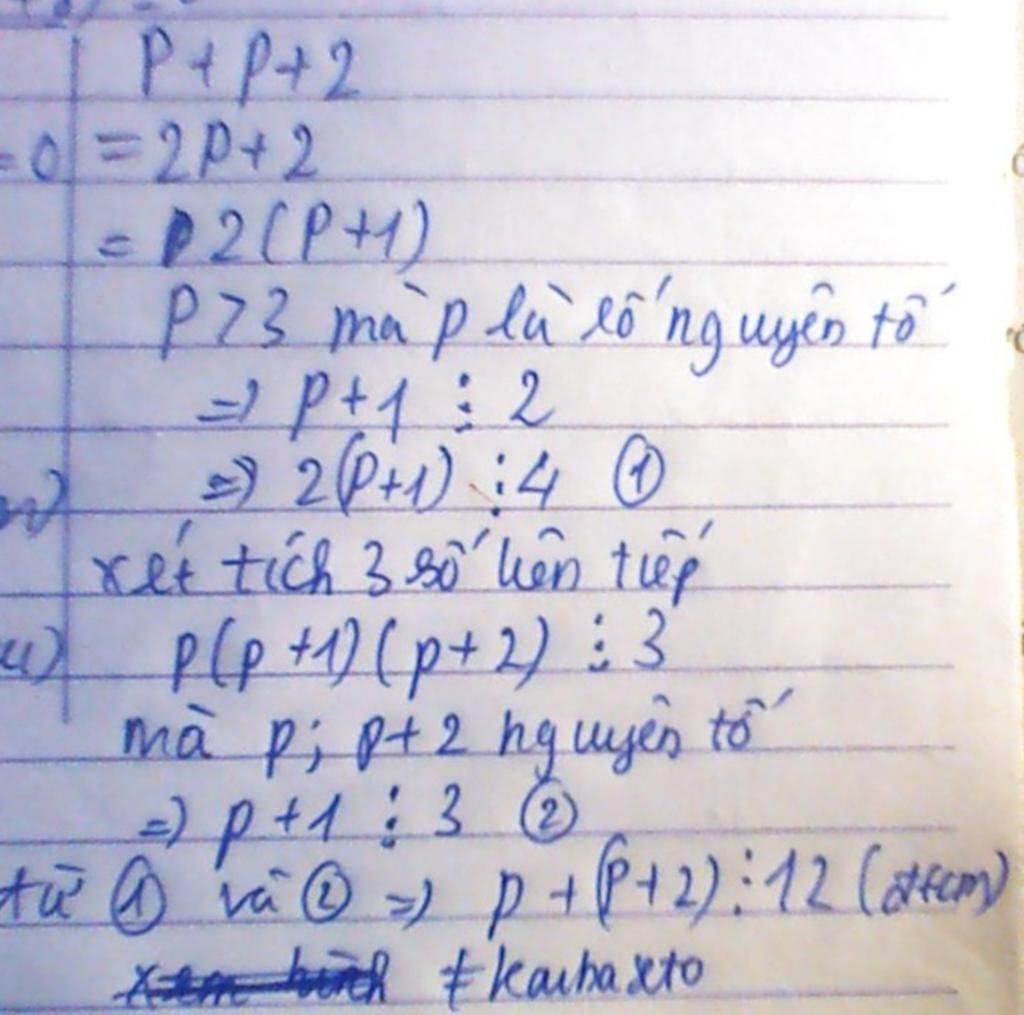 P + P + 2
= 0 = 2P + 2
= 2(P+1)
P > 3 mà p là số nguyên tố
=> P + 1 ⋮ 2
=> 2(P+1) ⋮ 4 ①
xét tích 3 số liên tiếp
p(p+1)(p+2) ⋮ 3
mà p; p+2 nguyên tố
=> p + 1 ⋮ 3 ②
từ ① và ② => p + (p+2) ⋮ 12 (đttcm)